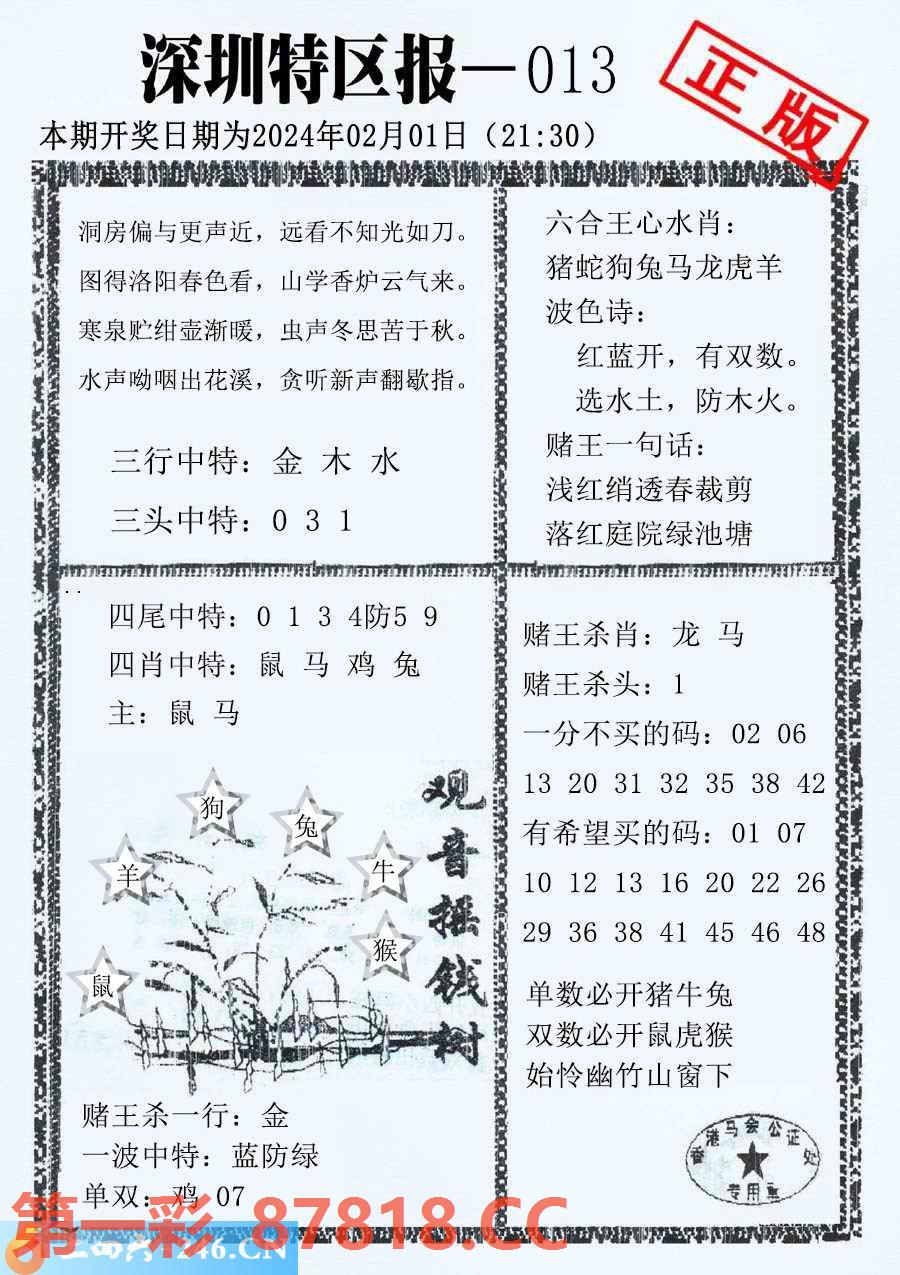 深圳特区报—013
正版
本期开奖日期为2024年02月01日（21:30）
洞房偏与更声近，远看不知光如刀。
图得洛阳春色看，山学香炉云气来。
寒泉贮绀壶渐暖，虫声冬思苦于秋。
水声呦咽出花溪，贪听新声翻歇指。
三行中特：金 木 水
三头中特：0 3 1
六合王心水肖：
猪蛇狗兔马龙虎羊
波色诗：
红蓝开，有双数。
选水土，防木火。
赌王一句话：
浅红绡透春裁剪
落红庭院绿池塘
四尾中特：0 1 3 4防5 9
四肖中特：鼠 马 鸡 兔
主：鼠 马
狗
兔
羊
牛
猴
鼠
观音摇钱树
赌王杀一行：金
一波中特：蓝防绿
单双：鸡 07
赌王杀肖：龙 马
赌王杀头：1
一分不买的码：02 06
13 20 31 32 35 38 42
有希望买的码：01 07
10 12 13 16 20 22 26
29 36 38 41 45 46 48
单数必开猪牛兔
双数必开鼠虎猴
始怜幽竹山窗下
香港马会公证处
专用章
第一彩 87818.CC
246.CN